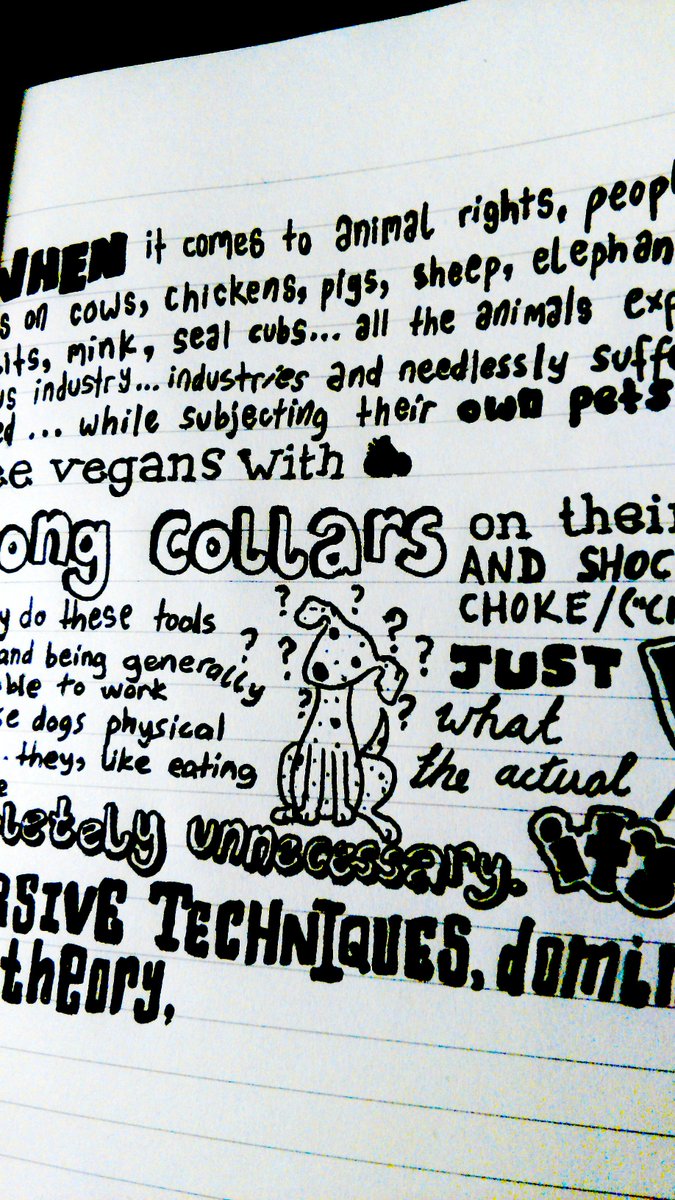 WHEN it comes to animal rights, peopl
s on cows, chickens, pigs, sheep, elephan
its, mink, seal cubs... all the animals exp
us industry... industries and needlessly suffe
ed ... while subjecting their own pets
ee vegans with
ong collars on their
AND SHOC
CHOKE/("C
y do these tools
and being generally
ble to work
se dogs physical
.. they, like eating
e
pletely unnecessary.
? ? ? ? ? ? ? ?
JUST
what
the actual
it's
RSIVE TECHNIQUES, domin
theory,